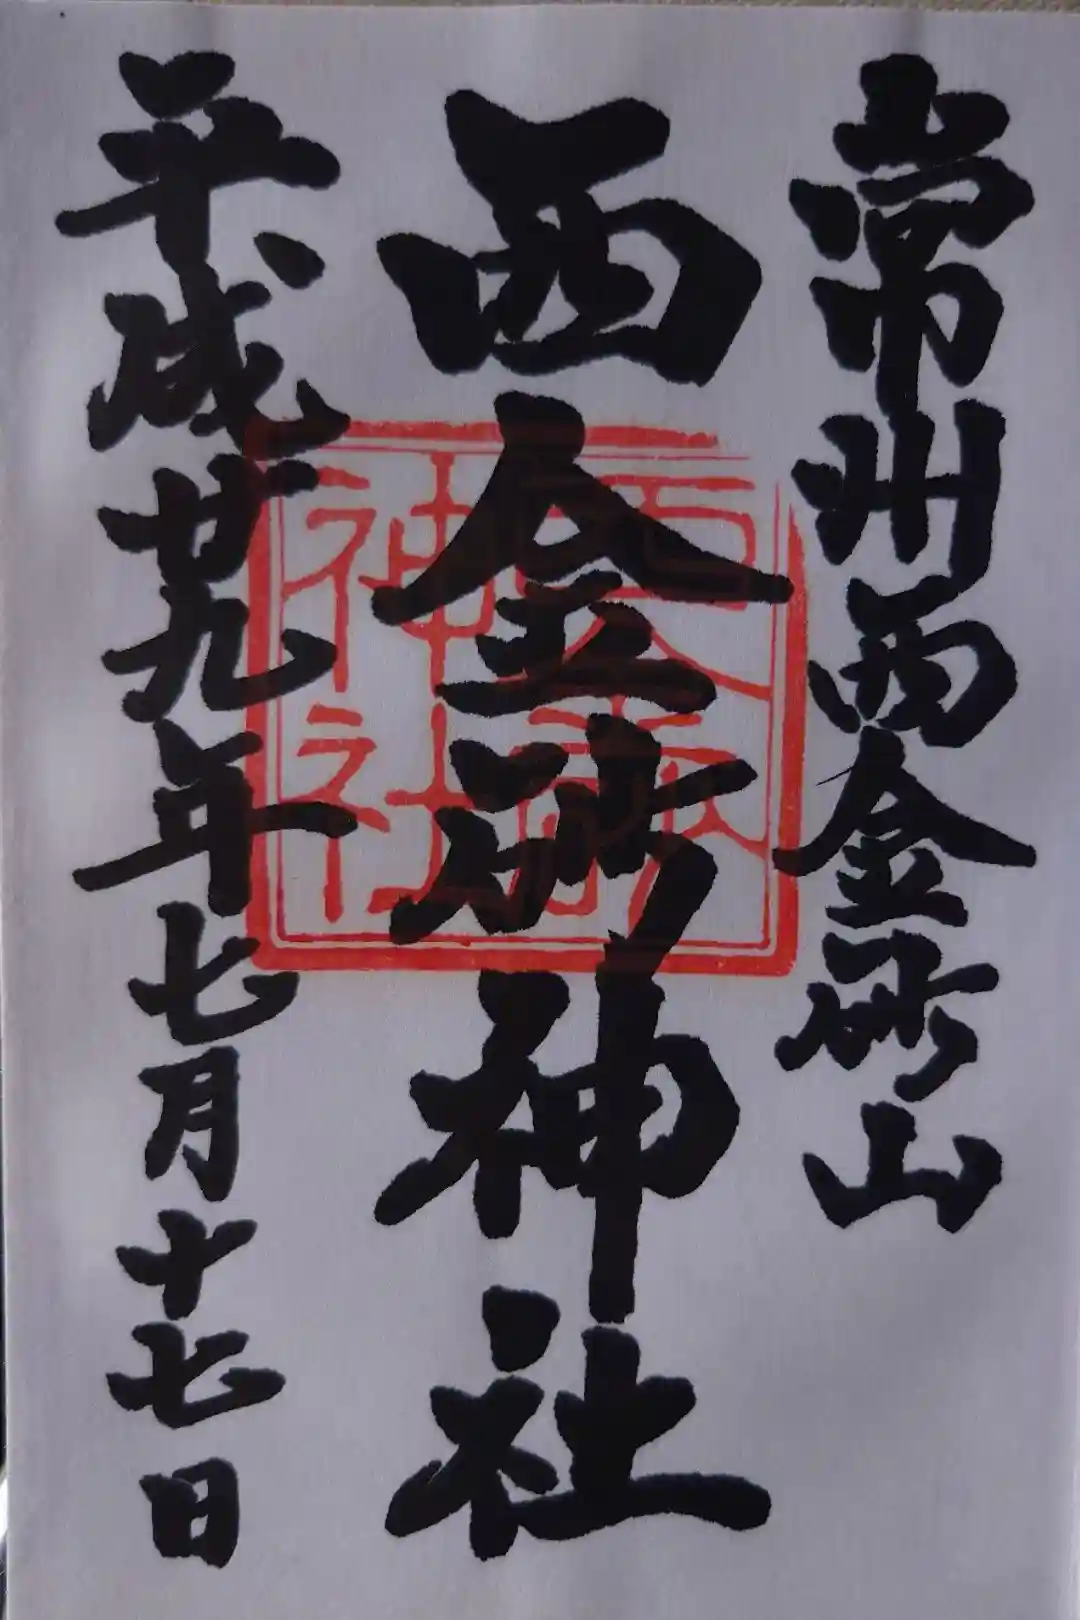 常州西金砂山
西金砂神社
平成廿九年七月十七日
西金砂
神社